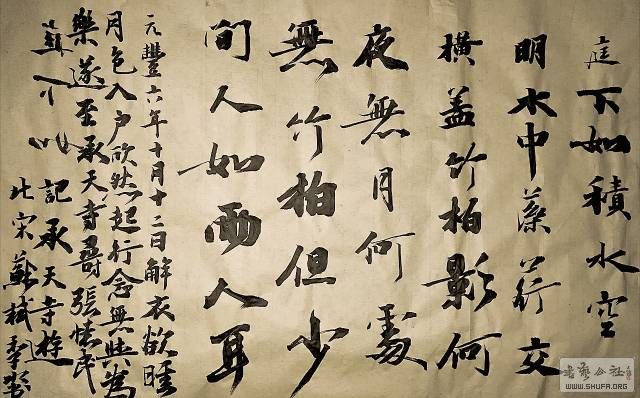 庭下如積水空
明水中藻荇交
橫盖竹柏影何
夜無月何處
無竹柏但少
間人如兩人耳
元豐六年十月十二日解衣欲睡
月色入户欣然起行念無與為
樂遂至承天寺尋張懷民
記承天寺遊
北宋蘇軾
WWW.SHUFA.ORG